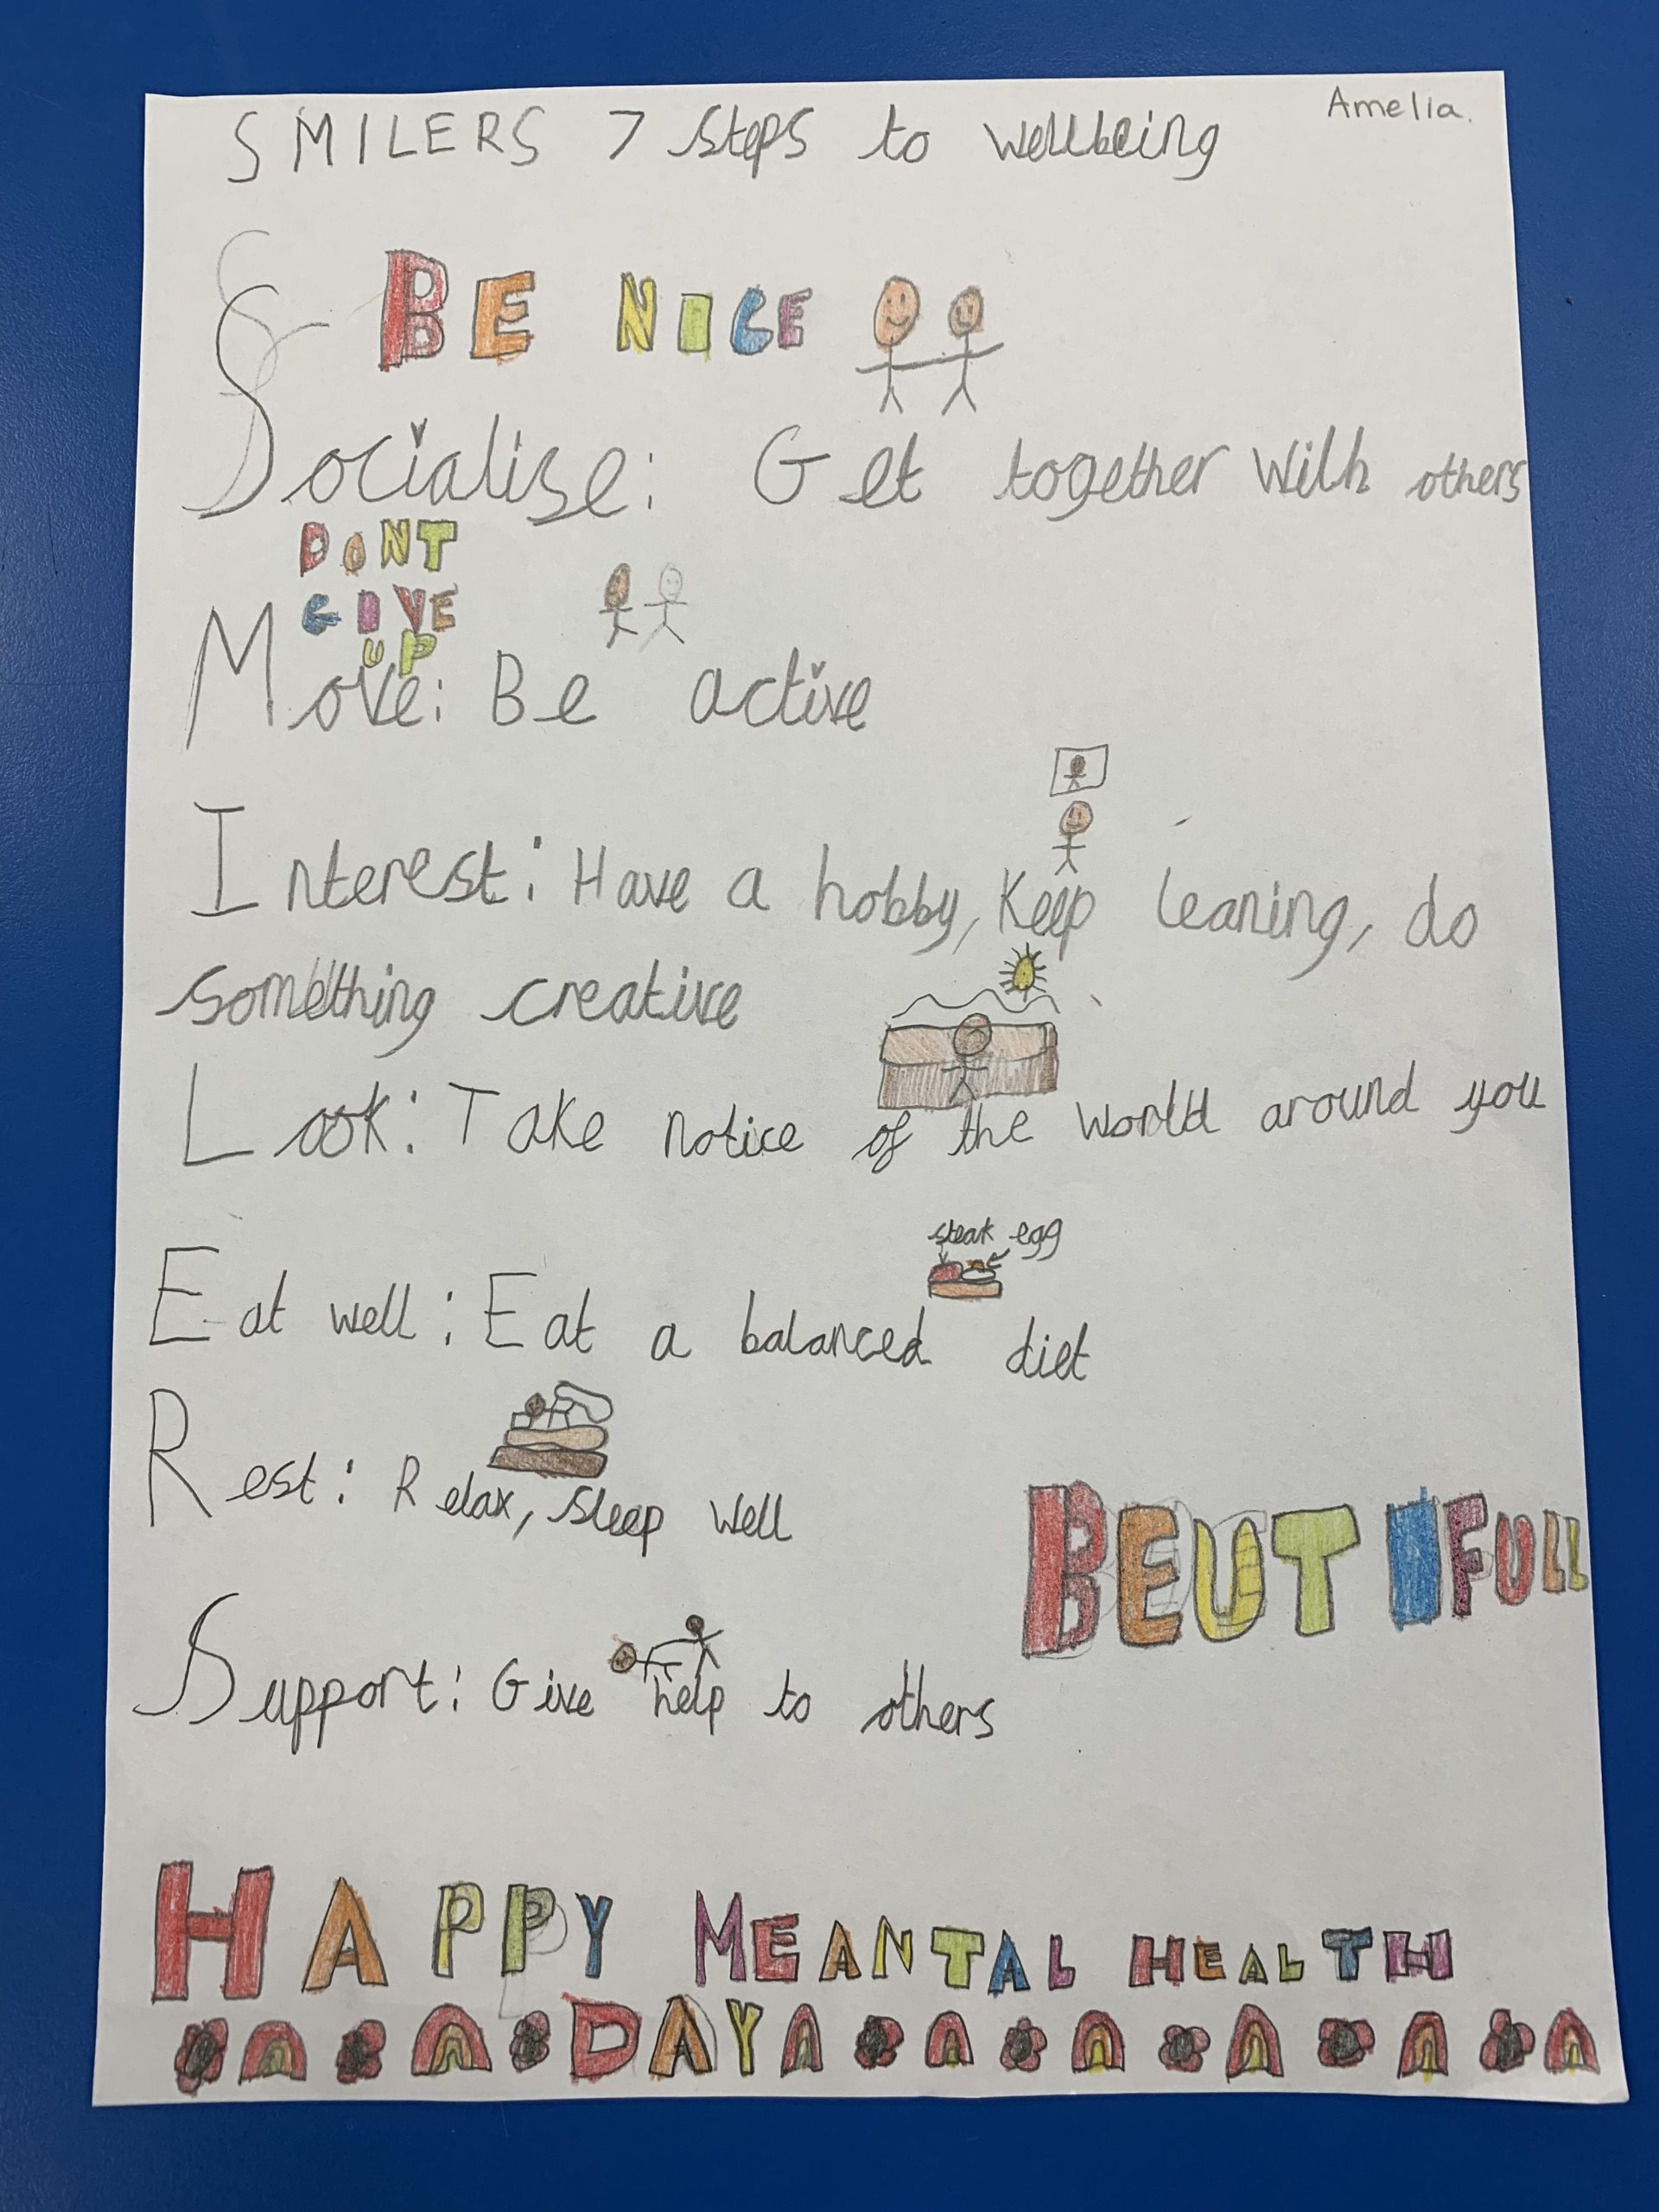 Amelia.
SMILERS 7 steps to wellbeing
BE NICE
Socialise: Get together with others
DONT
GIVE
UP
Move: Be active
Interest: Have a hobby, Keep leaning, do
something creative
Look: Take notice of the world around you
steak egg
Eat well: Eat a balanced diet
Rest: Relax, sleep well
BEUTIFULL
Support: Give help to others
HAPPY MEANTAL HEALTH
DAY